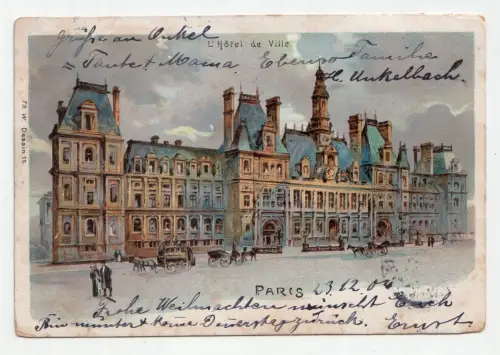 Grüße an Onkel
L'Hôtel de Ville.
Tante + Mama. Ebenso Familie
H. Unkelbach.
Dessin. 15.
PARIS 23.12.04
Frohe Weihnachten wünscht Euch
Bin munter + Donnerstag zurück. Ernst